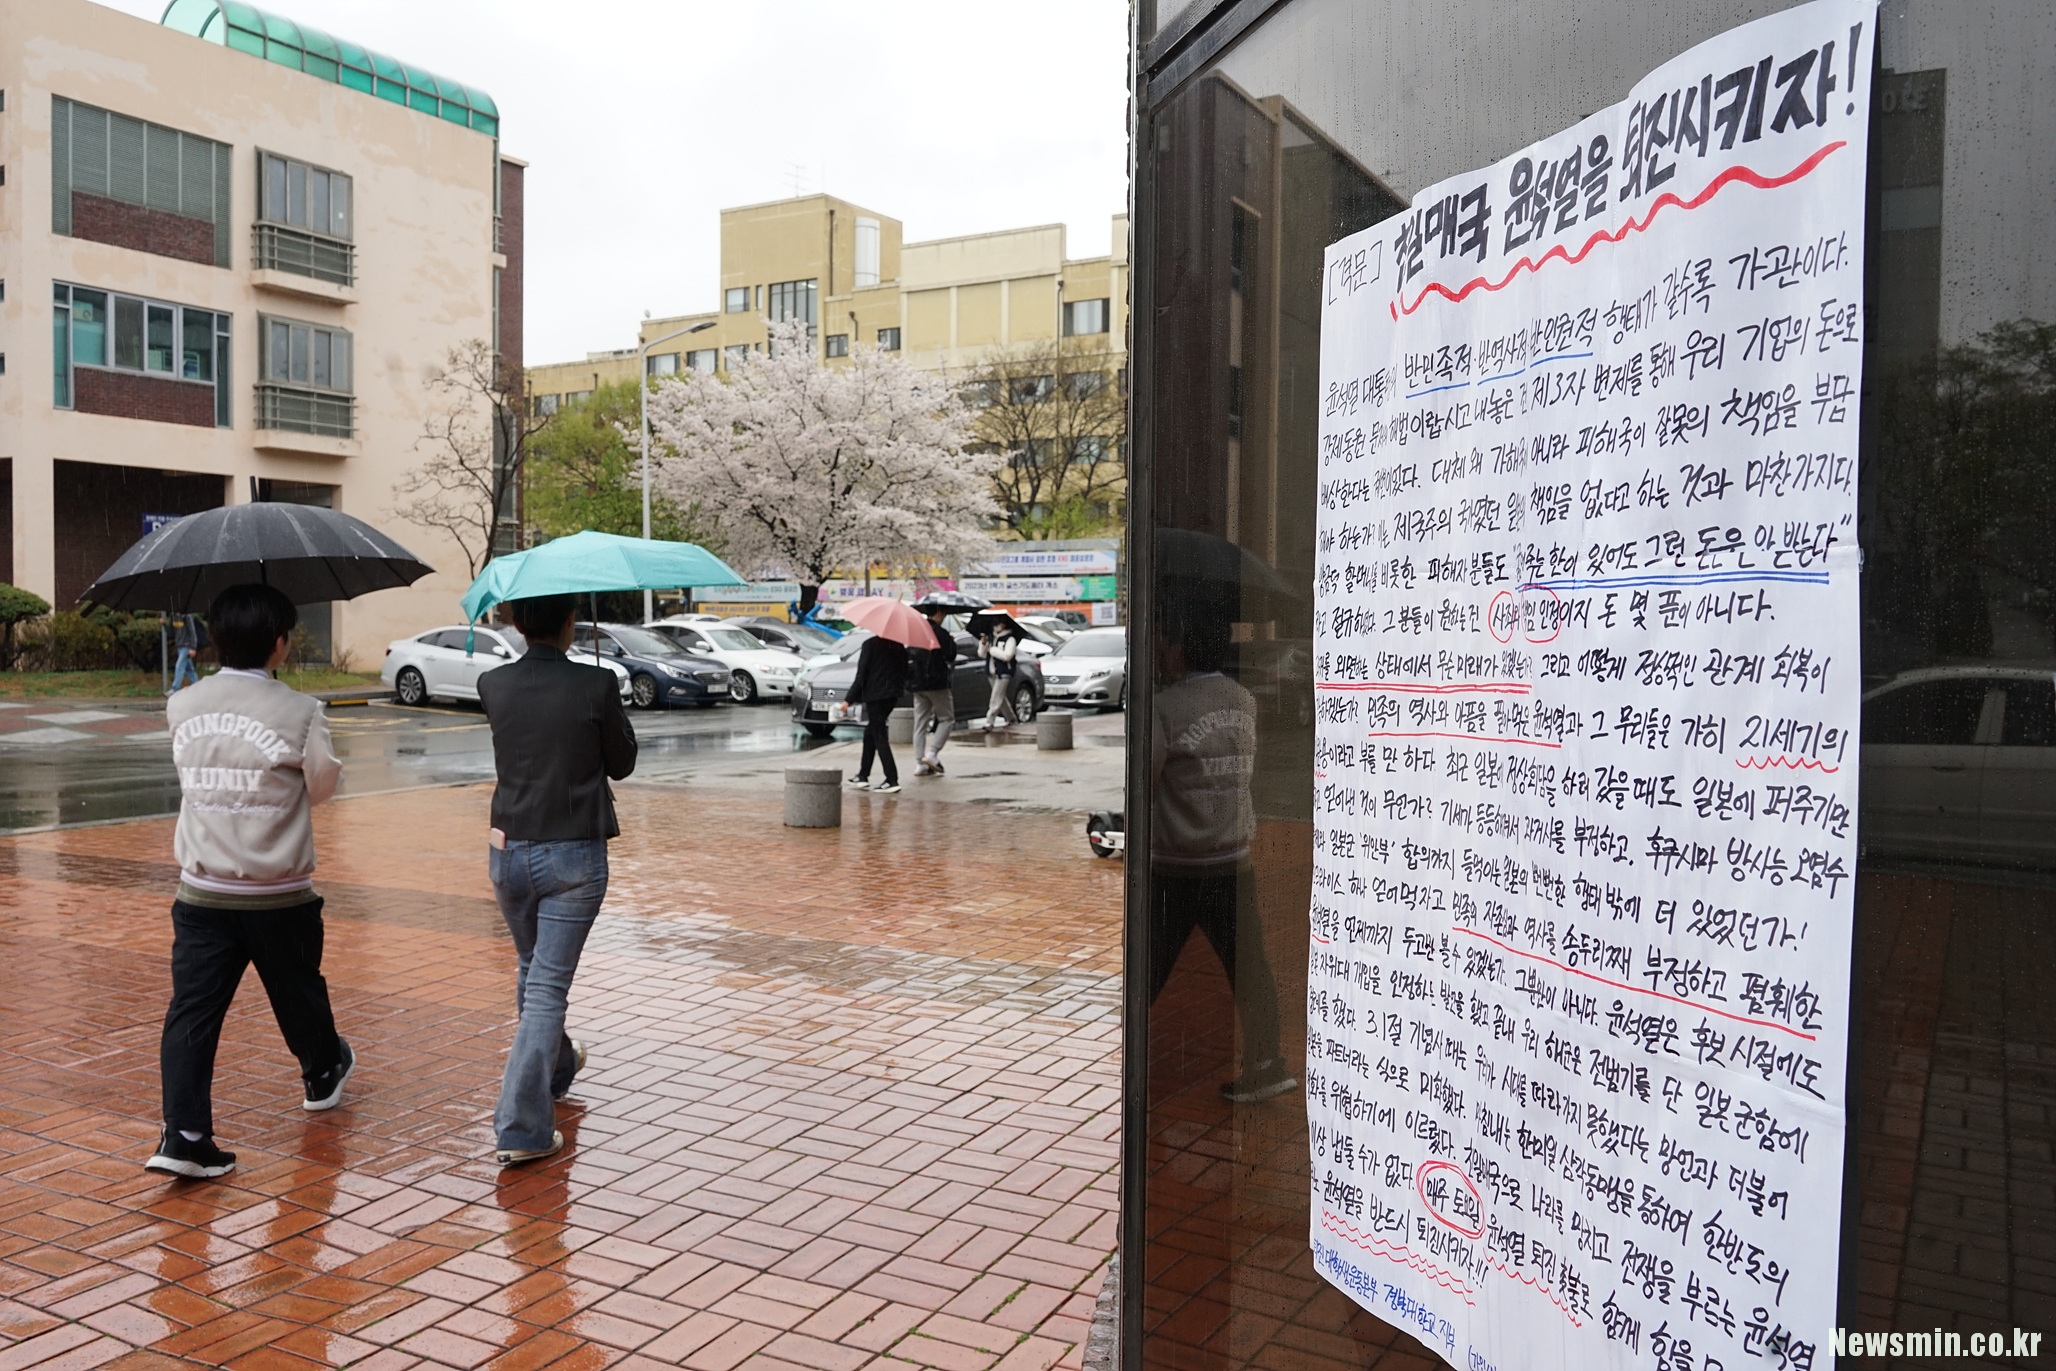 KYUNGPOOK
N.UNIV
[격문] 친일매국 윤석열을 퇴진시키자!
윤석열 대통령의 반민족적·반역사적 반인권적 행태가 갈수록 가관이다.
강제동원 문제 해법이랍시고 내놓은 건 제3자 변제를 통해 우리 기업의 돈으로
배상한다는 것이었다. 대체 왜 가해자가 아니라 피해국이 잘못의 책임을 부담
해야 하는가? 이는 제국주의 국가였던 일본의 책임을 없다고 하는 것과 마찬가지다.
할머니를 비롯한 피해자분들도 "굶어죽는 한이 있어도 그런 돈은 안 받는다"
라고 절규하셨다. 그분들이 원하는 건 사죄와 책임 인정이지 돈 몇 푼이 아니다.
외면하는 상태에서 무슨 미래가 있겠는가? 그리고 어떻게 정상적인 관계 회복이
가능하겠는가? 민족의 역사와 아픔을 팔아먹은 윤석열과 그 무리들은 가히 21세기의
이라고 부를 만 하다. 최근 일본에 정상회담을 하러 갔을때도 일본에 퍼주기만
하고 얻어낸 것이 무언가? 기세가 등등해져서 과거사를 부정하고, 후쿠시마 방사능 오염수
일본군 '위안부' 합의까지 들먹이는 일본의 뻔뻔한 행태 밖에 더 있었던가!
오므라이스 하나 얻어먹자고 민족의 자존심과 역사를 송두리째 부정하고 폄훼한
윤석열을 언제까지 두고만 볼 수 있겠는가. 그뿐만이 아니다. 윤석열은 후보 시절에도
자위대 개입을 인정하는 발언을 했고 끝내 우리 해군은 전범기를 단 일본군함에
경례를 했다. 3.1절 기념사 때는 우리가 시대를 따라가지 못했다는 망언과 더불어
일본을 파트너라는 식으로 미화했다. 마침내는 한미일 삼각동맹을 통하여 한반도의
평화를 위협하기에 이르렀다. 친일매국으로 나라를 망치고 전쟁을 부르는 윤석열
이상 냅둘 수가 없다. 매주 토요일 윤석열 퇴진 촛불로 함께 힘을
윤석열을 반드시 퇴진시키자!!!
대학생운동본부 경북대학교 지부
Newsmin.co.kr